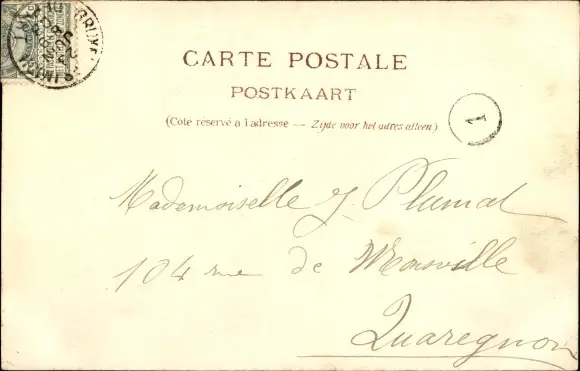 CARTE POSTALE
POSTKAART
(Côté réservé a l'adresse — Zijde voor het adres alleen)
1
Mademoiselle J. Plumat
104 rue de Monsville
Quaregnon